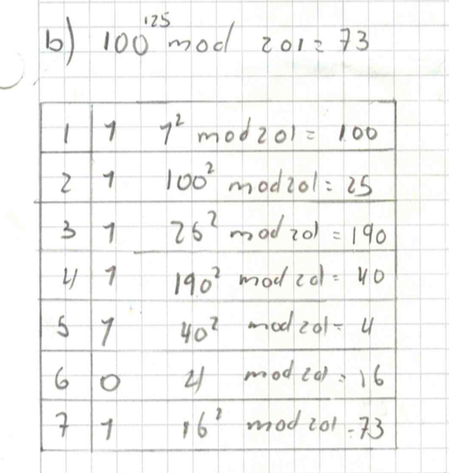 b) 100¹²⁵ mod 201 = 73
1 1 1² mod 201 = 100
2 1 100² mod 201 = 25
3 1 25² mod 201 = 190
4 1 190² mod 201 = 40
5 1 40² mod 201 = 4
6 0 4 mod 201 = 16
7 1 16² mod 201 = 73